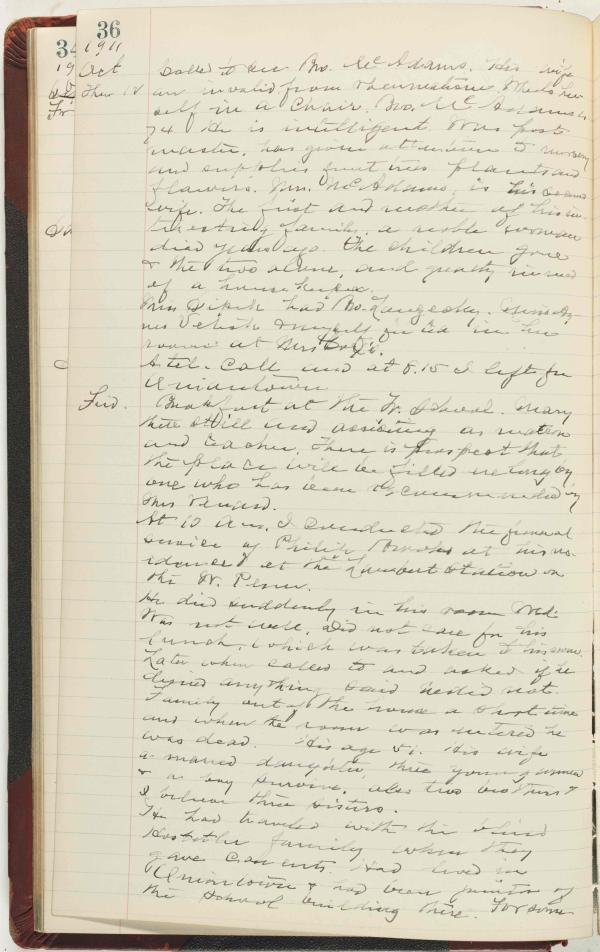 36
1911
Oct
Thur 12
Called to see Bro. McAdams. His wife
an invalid from rheumatism. Wheels her
self in a Chair. Bro. McAdams is
74 He is intelligent. Was post
master, has given attention to nursery
and supplies fruit trees plants and
flowers. Mrs. McAdams, is his second
wife. The first and mother of his in-
teresting family, a noble woman
died years ago. The children gone
& the two alone, and greatly in need
of a housekeeper.
Miss had Bro. Miss Ag-
nes & myself in her
rooms at Mrs
A tel. call and at 8.15 I left for
Uniontown
Frid.
Breakfast at the Tr. School. Mary
there still and assisting as matron
and teacher. There is prospect that
the place will be filled ere long by
one who has been recommended by
Mrs
At 10 A.M. I conducted the funeral
service of Philip at his re-
sidence at the Lambert Station on
the W. Penn.
He died suddenly in his room Wed.
Was not well, did not care for his
lunch, which was taken to his room.
Later when called to and asked if he
desired anything said he did not.
Family out of the house a short time
and when the room was entered he
was dead. His age 51. His wife
a married daughter, three young women
& a boy survive, also two brothers &
I believe three sisters.
He had traveled with the blind
Hostetler family when they
gave concerts. Had lived in
Uniontown & had been janitor of
the school building there. For some